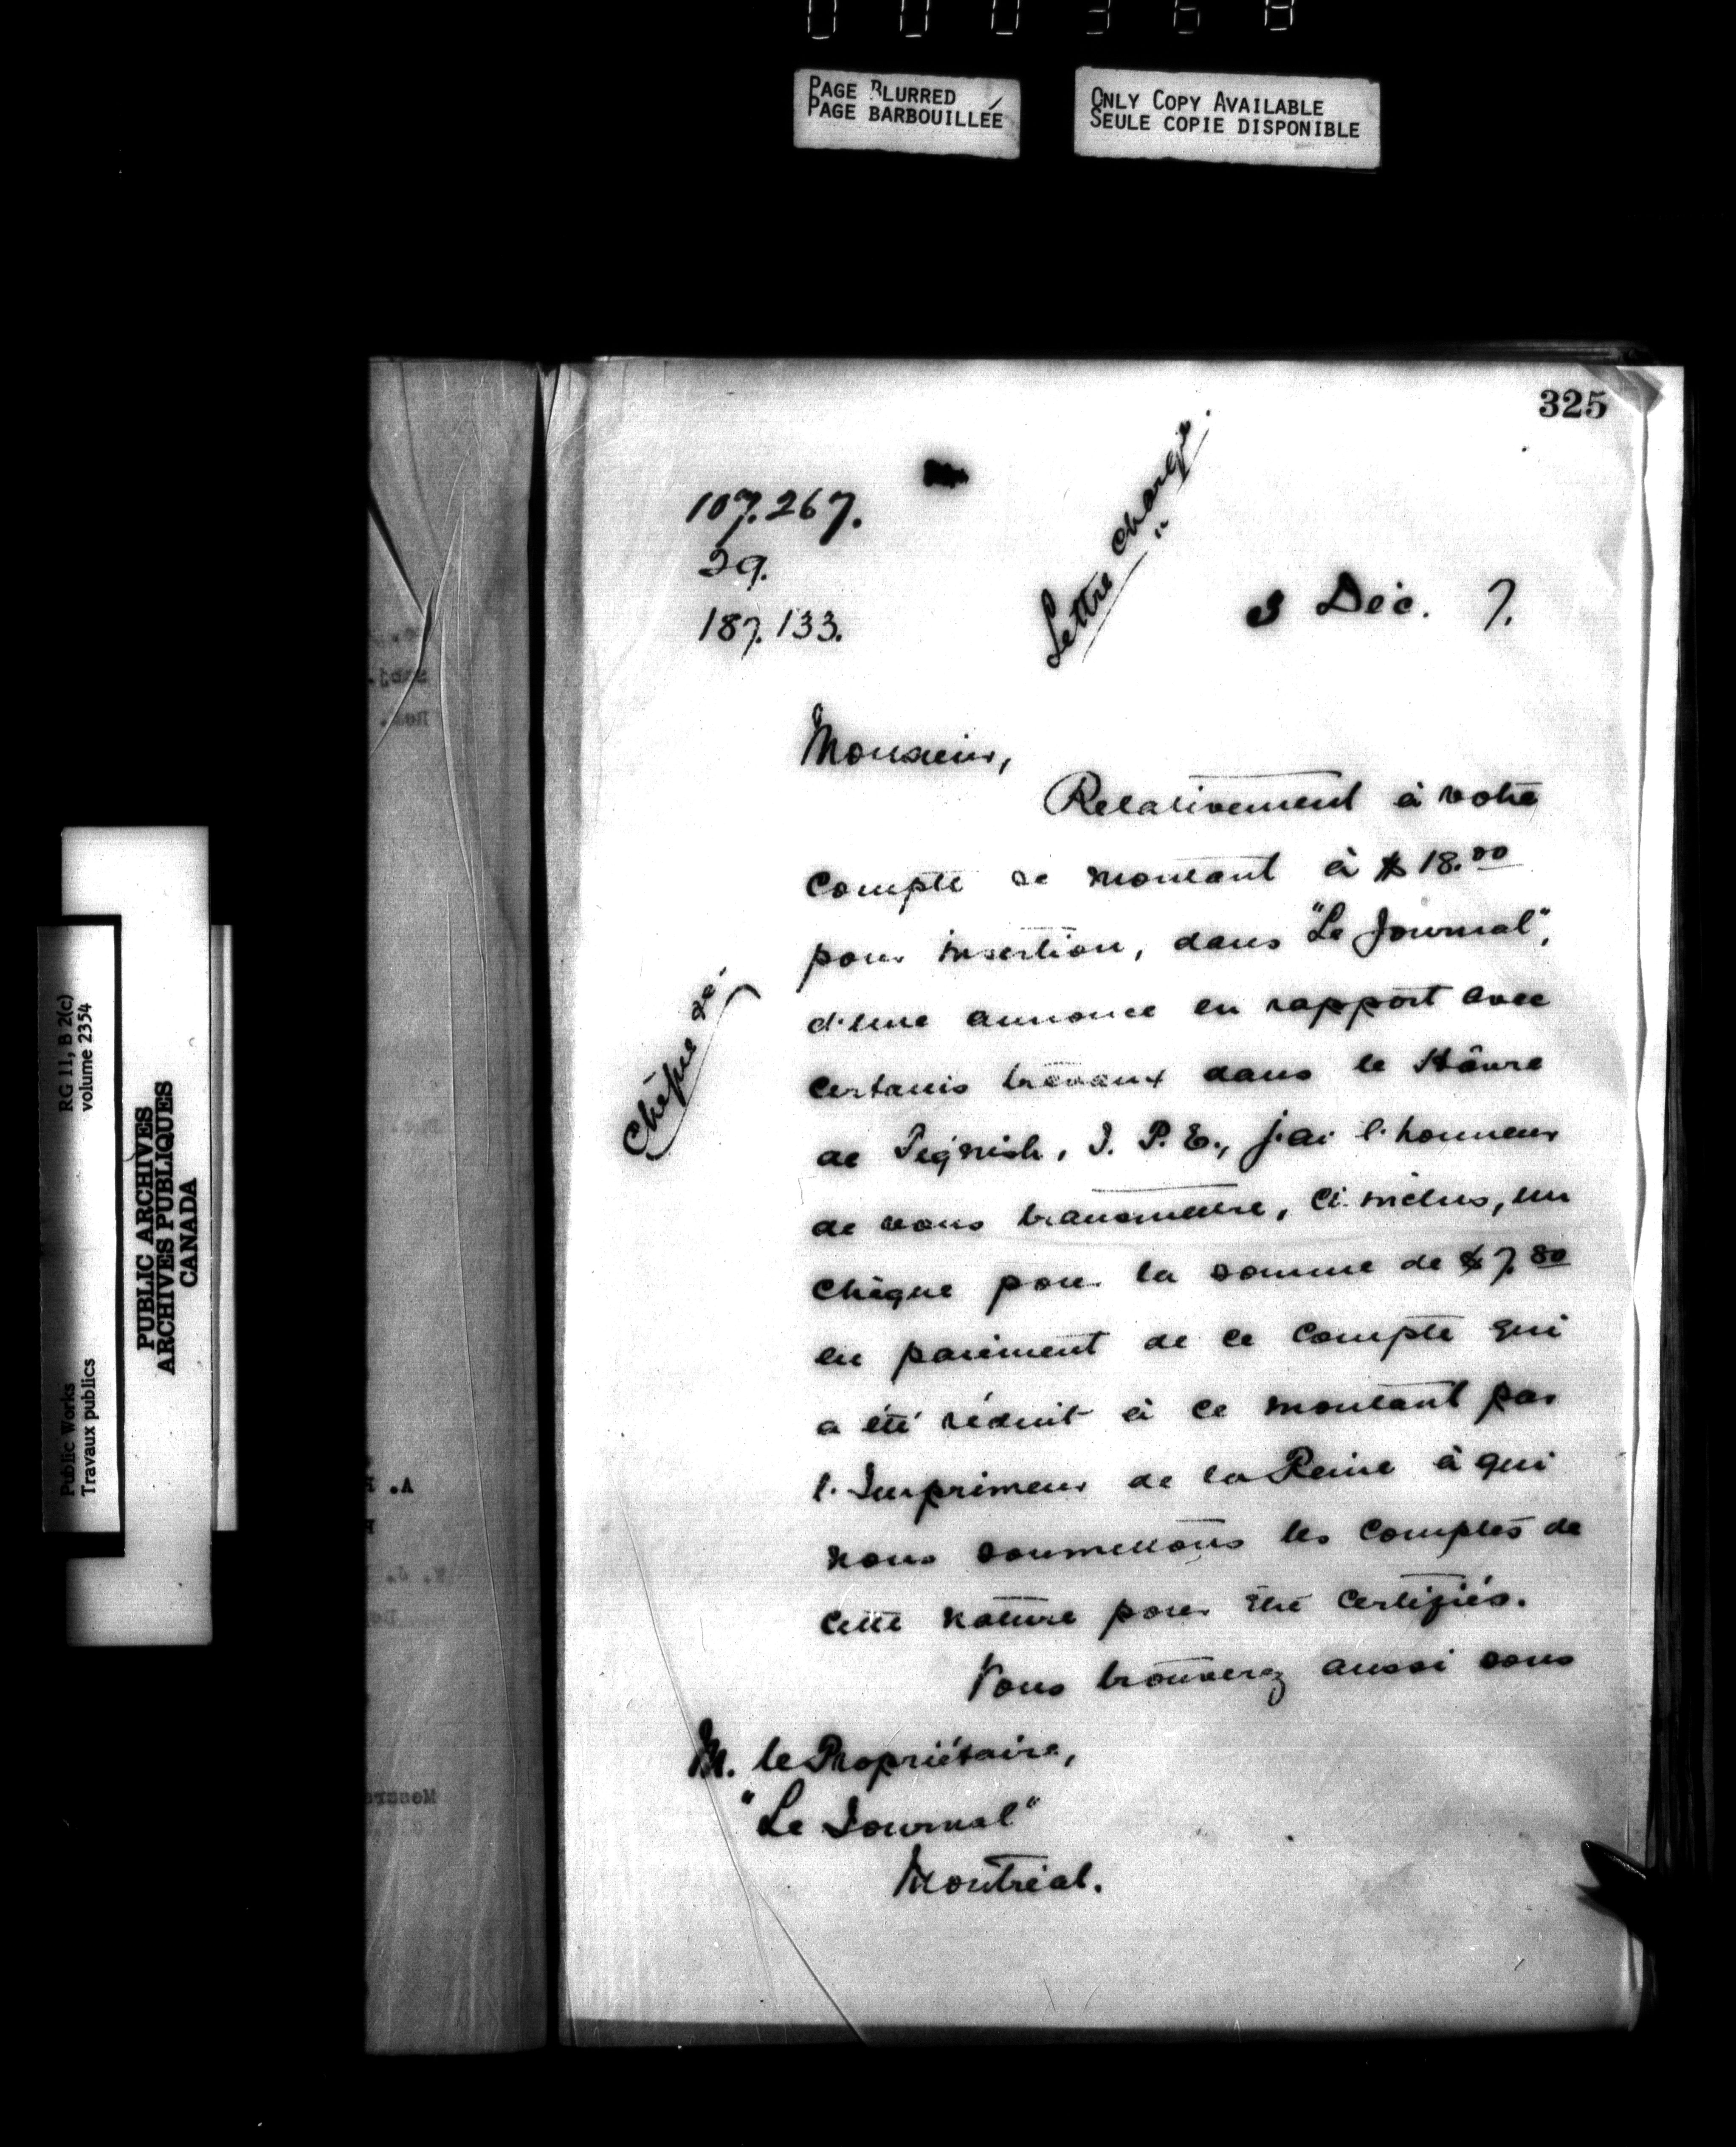 000368
PAGE BLURRED
PAGE BARBOUILLÉE
ONLY COPY AVAILABLE
SEULE COPIE DISPONIBLE
325
107.267.
29.
187.133.
Lettre chargé
3 Déc. 7.
Monsieur,
Relativement à votre
compte se montant à $18.00
pour insertion, dans "Le Journal",
d'une annonce en rapport avec
certains travaux dans le Hâvre
de Tignish, I. P. E., j'ai l'honneur
de vous transmettre, ci-inclus, un
chèque pour la somme de $7.80
en paiement de ce compte qui
a été réduit à ce montant par
l'Imprimeur de la Reine à qui
nous soumettons les comptes de
cette nature pour être certifiés.
Vous trouverez aussi sous
M. le Propriétaire,
"Le Journal"
Montréal.
RG 11, B 2(c)
volume 2354
Public Works
Travaux publics
PUBLIC ARCHIVES
ARCHIVES PUBLIQUES
CANADA